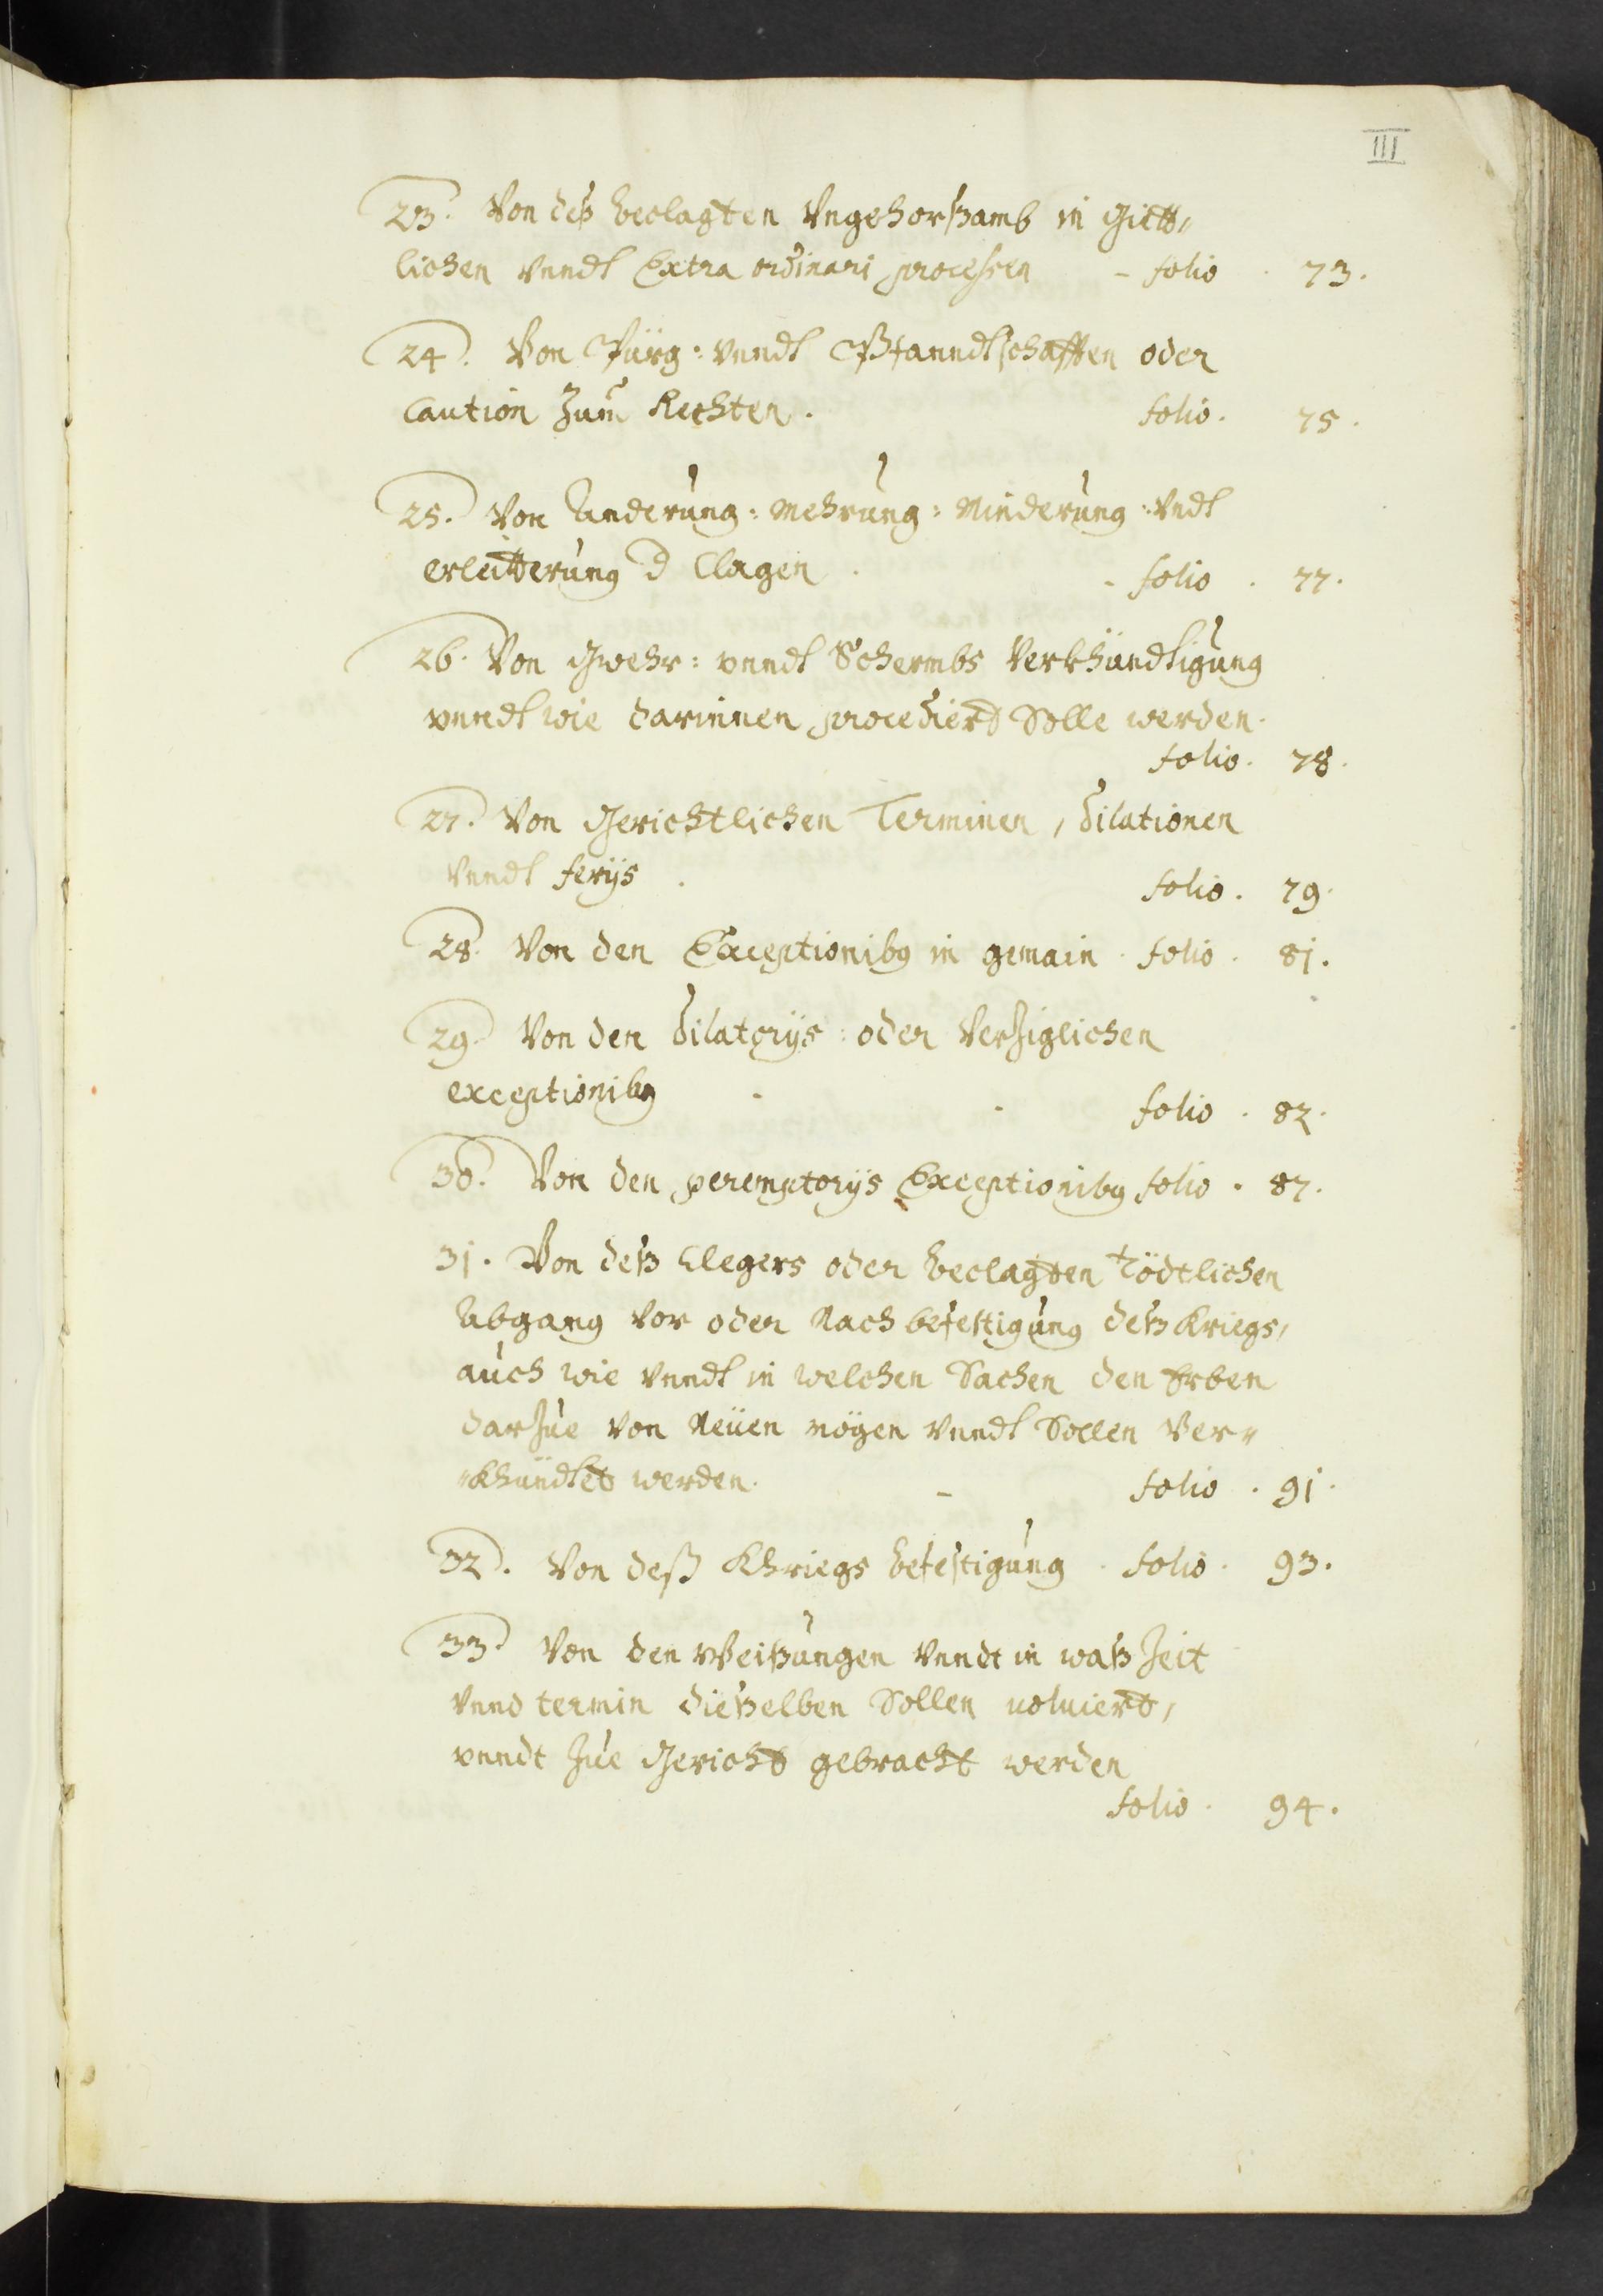 III
23. Von deß beclagten Vngehorßamb in Giett„
lichen vnndt Extra ordinari processen - folio 73.
24. Von Pürg: vnndt Pfanndtschafften oder
Caution Zum Rechten. folio. 75.
25. Von Anderung: Mehrung: Minderung: Vndt
erleitterung d Clagen. - folio. 77.
26. Von Gwehr: vnndt Schermbs Verkhündtigung
vnndt wie darinnen procediert Solle werden.
folio. 78.
27. Von Gerichtlichen Terminen, dilationen
Vnndt ferijs. folio. 79.
28. Von den Exceptionibg in gemain. folio. 8j.
29. Von den dilatorijs: oder Verziglichen
exceptionibg - - folio. 82.
30. Von den peremptorijs Exceptionibg folio. 87.
3j. Von deß Clegers oder beclagten Tödtlichen
Abgang vor oder Nach befestigung deß Kriegs,
auch wie vnndt in welchen Sachen den Erben
darzue von Neüen mögen vnndt Sollen Ver„
„khündtet werden. - folio. 9j.
32. Von deß Khriegs befestigung. folio. 93.
33. Von den Weißungen vnndt in waß Zeit
vnnd termin dießelben Sollen volviert,
vnndt Zue Gericht gebracht werden
folio. 94.